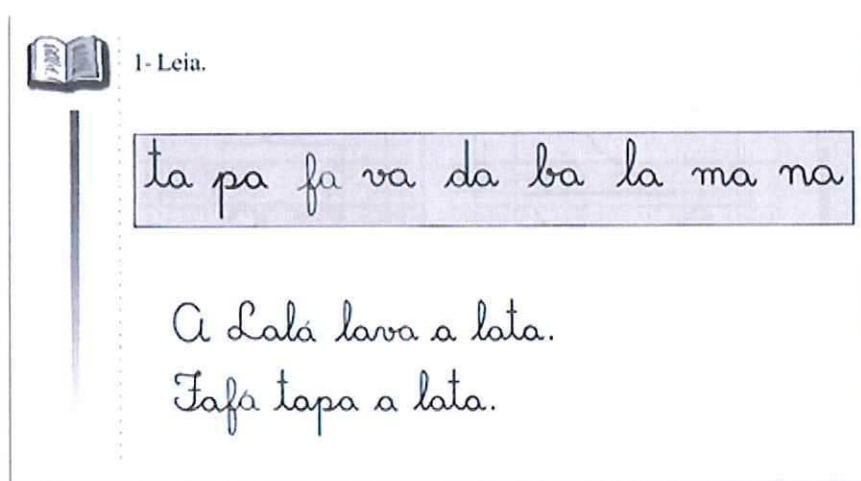 1- Leia.
ta pa fa va da ba la ma na
A Lalá lava a lata.
Fafá tapa a lata.